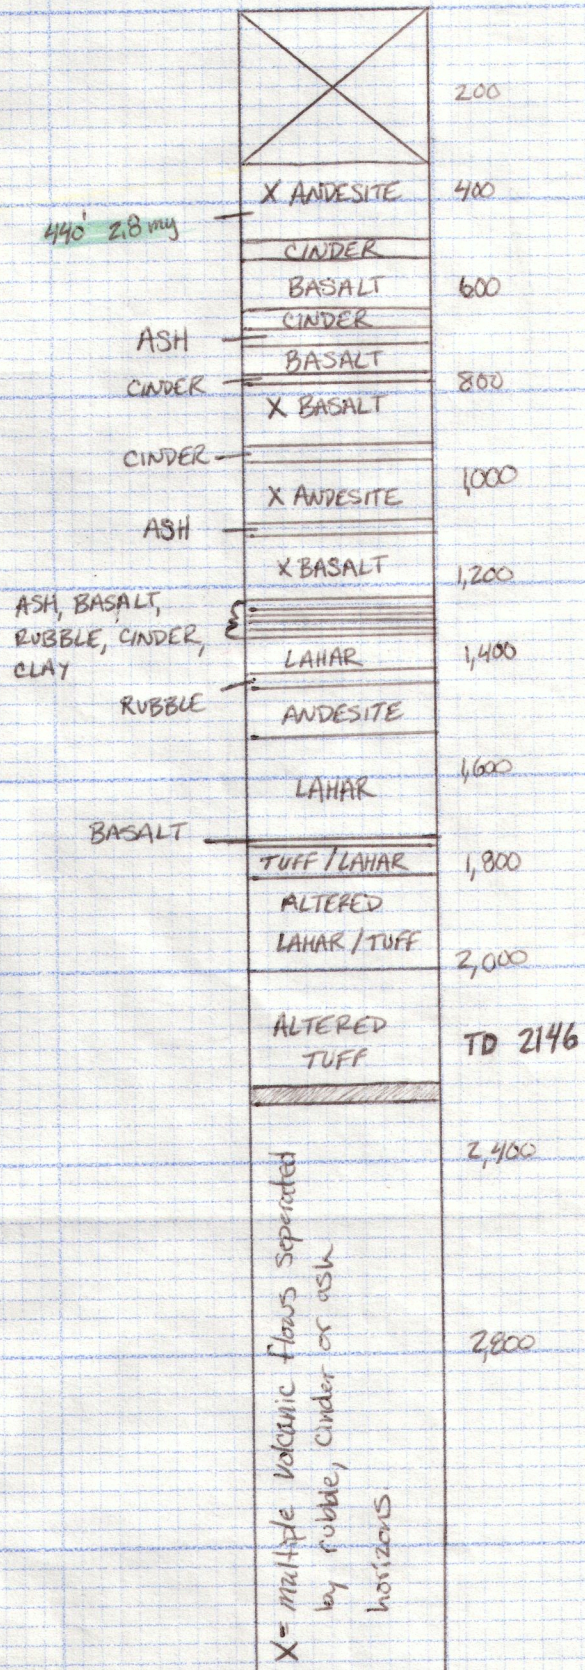 200
X ANDESITE 400
440' 2.8 my
CINDER
BASALT 600
CINDER
ASH
BASALT
CINDER 800
X BASALT
CINDER
1,000
X ANDESITE
ASH
X BASALT 1,200
ASH, BASALT,
RUBBLE, CINDER,
CLAY
LAHAR 1,400
RUBBLE
ANDESITE
1,600
LAHAR
BASALT
TUFF / LAHAR 1,800
ALTERED
LAHAR / TUFF
2,000
ALTERED
TUFF
TD 2146
2,400
2,800
X = multiple volcanic flows seperated
by rubble, cinder or ash
horizons